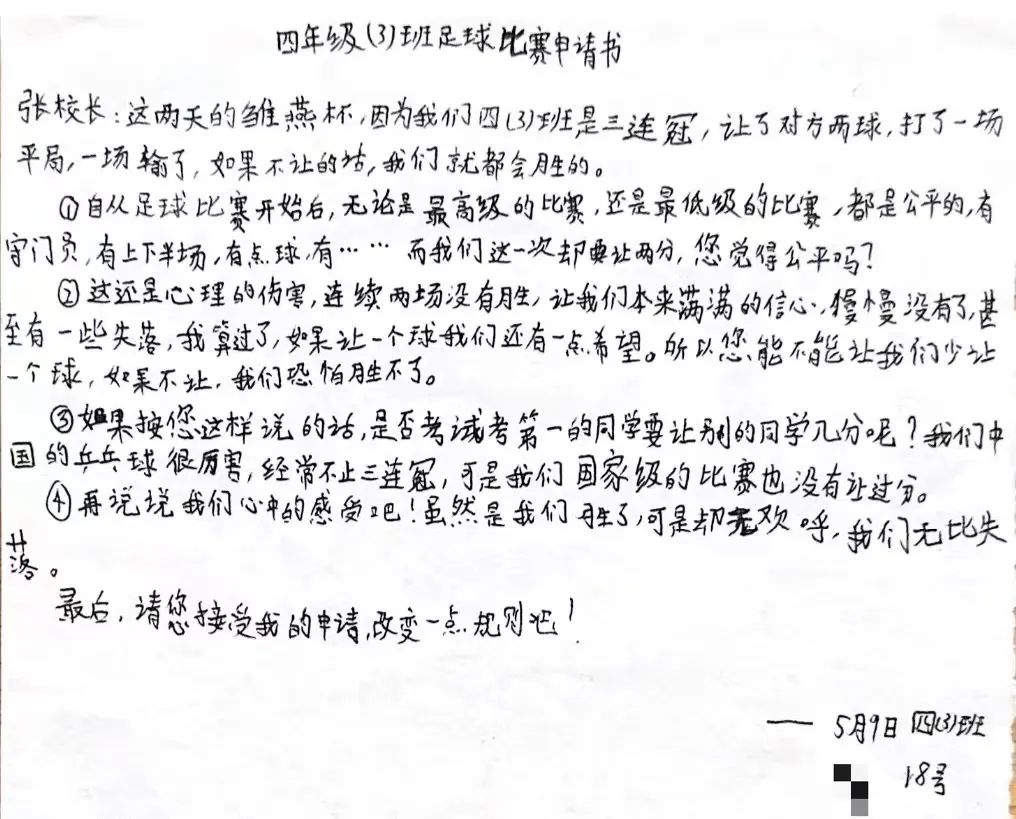 四年级(3)班足球比赛申请书
张校长：这两天的雏燕杯,因为我们四(3)班是三连冠，让了对方两球，打了一场
平局，一场输了，如果不让的话，我们就都会胜的。
①自从足球比赛开始后，无论是最高级的比赛，还是最低级的比赛，都是公平的，有
守门员，有上下半场，有点球，有……而我们这一次却要让两分，您觉得公平吗？
②这还是心理的伤害，连续两场没有胜，让我们本来满满的信心，慢慢没有了，甚
至有一些失落，我算过了，如果让一个球我们还有一点希望。所以您能不能让我们少让
一个球，如果不让，我们恐怕胜不了。
③如果按您这样说的话，是否考试考第一的同学要让别的同学几分呢？我们中
国的乒乓球很厉害，经常不止三连冠，可是我们国家级的比赛也没有让过分。
④再说说我们心中的感受吧！虽然是我们胜了，可是却无欢呼，我们无比失
落。
最后，请您接受我的申请，改变一点规则吧！
—— 5月9日 四(3)班
18号